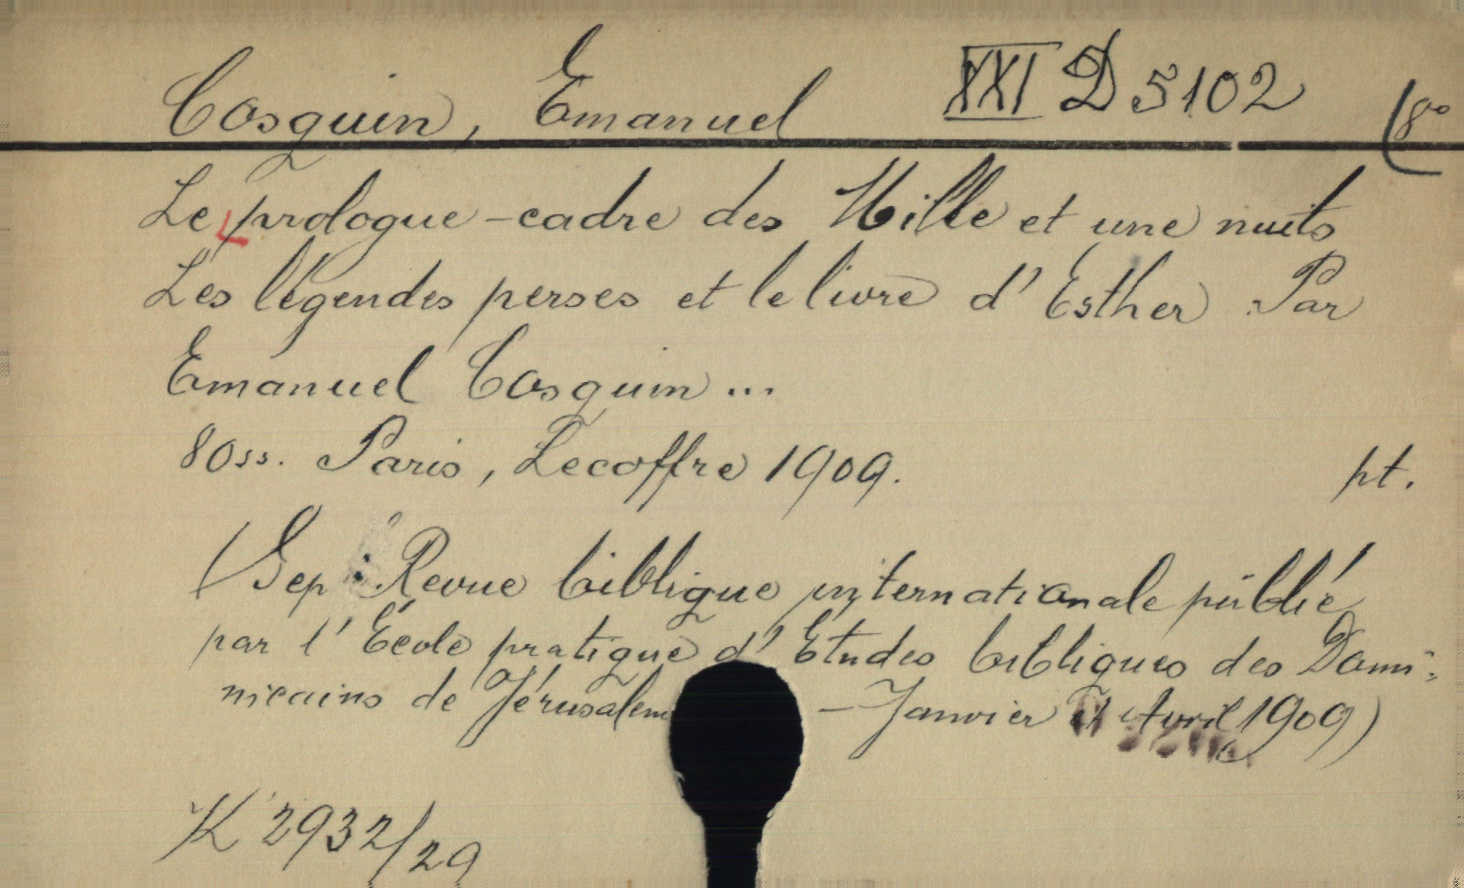 Cosquin, Emanuel XXI D 5102 (8°
Le prologue-cadre des Mille et une nuits
Les légendes perses et le livre d'Esther. Par
Emanuel Cosquin ...
80ss. Paris, Lecoffre 1909. pt.
(Sep : Revue biblique internationale publié
par l'École pratique d'Études bibliques des Domi-
nicains de Jérusalem – Janvier et Avril 1909)
K 2932/29